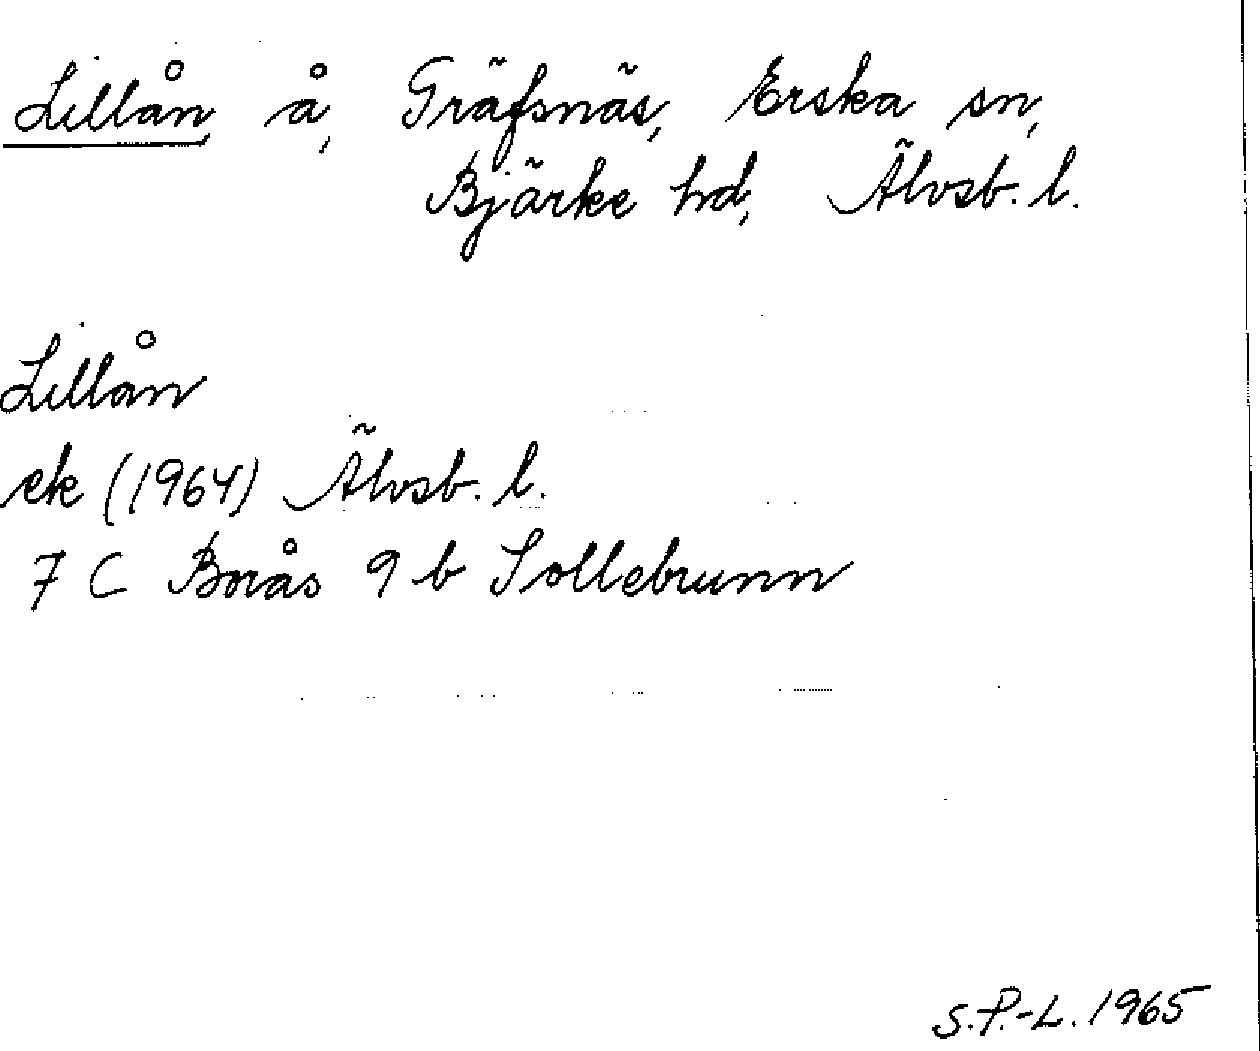 Lillån, å, Gräfsnäs, Erska sn,
Bjärke hd, Älvsb. l.
Lillån
ek (1964) Älvsb. l.
7 C Borås 9 b Sollebrunn
S.P.-L. 1965